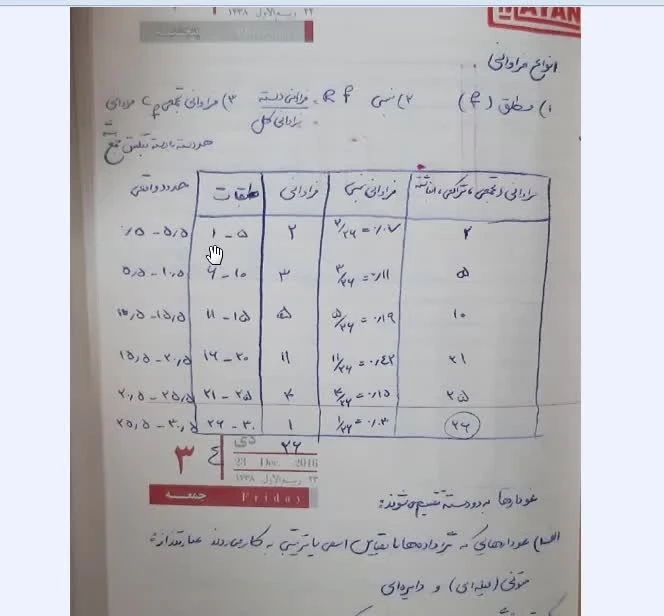 MATAN
٢٣ ربیع‌الاول ١٤٣٨
انواع فراوانی
۱) مطلق (f) ۲) نسبی Rf = فراوانی دسته / فراوانی کل ۳) فراوانی تجمعی Cf فراوانی
هر دسته با دسته قبلش جمع
حدود واقعی طبقات فراوانی فراوانی نسبی فراوانی (تجمعی، تراکمی، انباشته
۰/۵ - ۵/۵ ۱ - ۵ ۲ ۲/۲۶ = ۰/۰۷ ۲
۵/۵ - ۱۰/۵ ۶ - ۱۰ ۳ ۳/۲۶ = ۰/۱۱ ۵
۱۰/۵ - ۱۵/۵ ۱۱ - ۱۵ ۵ ۵/۲۶ = ۰/۱۹ ۱۰
۱۵/۵ - ۲۰/۵ ۱۶ - ۲۰ ۱۱ ۱۱/۲۶ = ۰/۴۲ ۲۱
۲۰/۵ - ۲۵/۵ ۲۱ - ۲۵ ۴ ۴/۲۶ = ۰/۱۵ ۲۵
۲۵/۵ - ۳۰/۵ ۲۶ - ۳۰ ۱ ۱/۲۶ = ۰/۰۳ ۲۶
۲۶
۳ دی
23 Dec. 2016
٢٣ ربیع‌الاول ١٤٣٨
جمعه Friday
نمودارها به دو دسته تقسیم می‌شوند:
الف) نمودارهایی که در داده‌ها با مقیاس اسمی یا ترتیبی به کار می‌روند عبارتند از:
ستونی (میله‌ای) و دایره‌ای